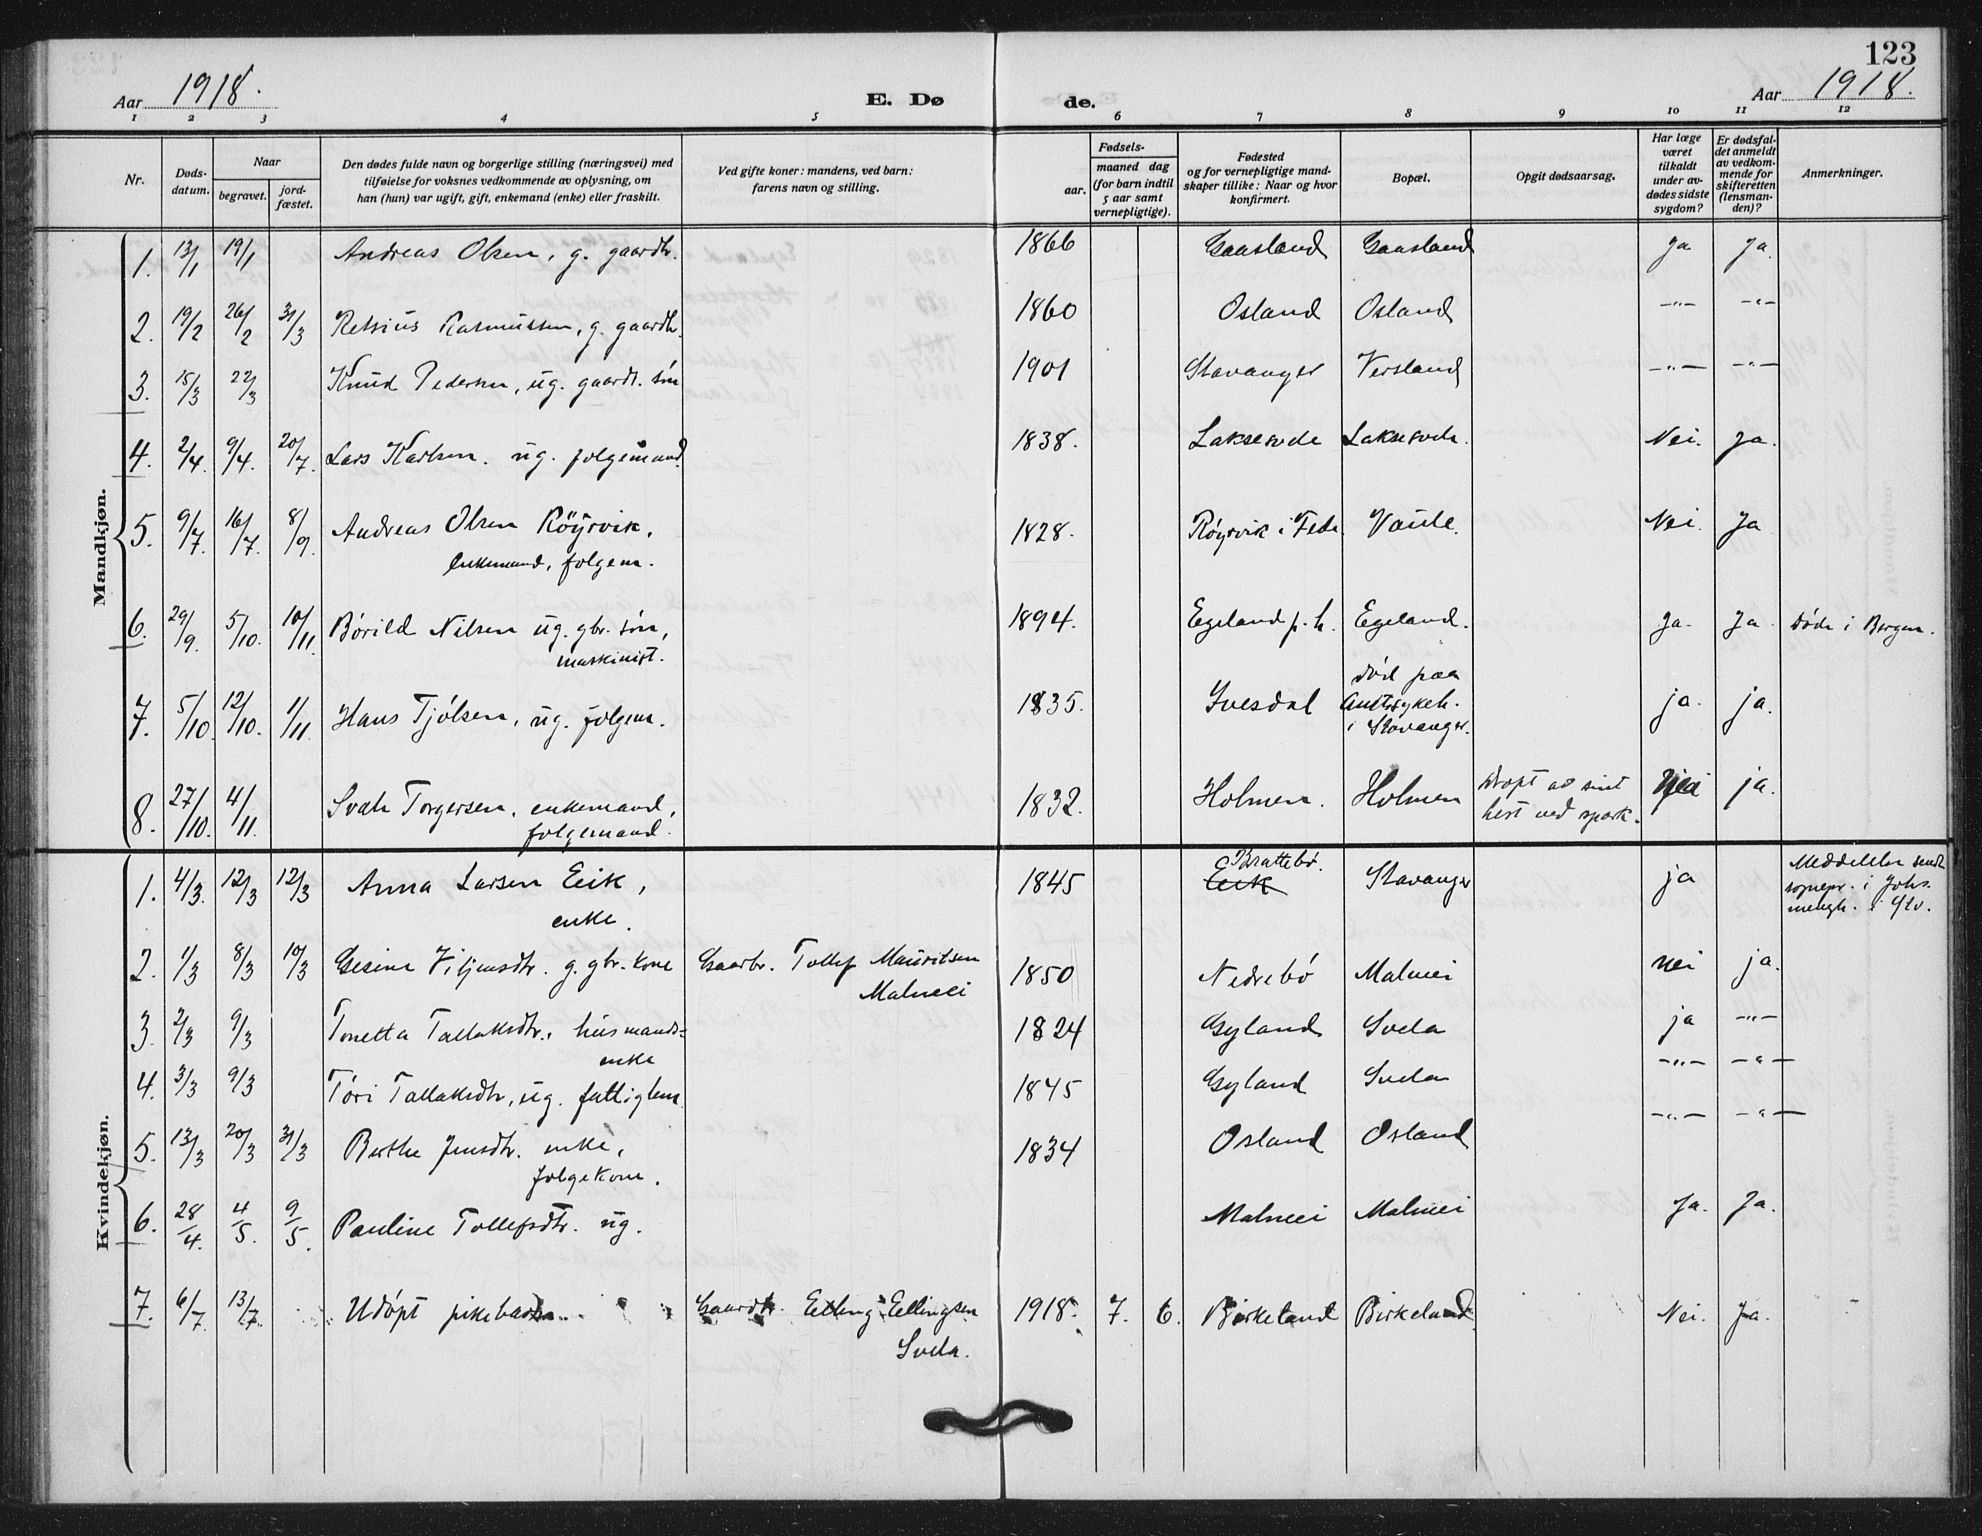 123
Aar 1918. E. Dø de. Aar 1918.
1 2 3 4 5 6 7 8 9 10 11 12
Nr.
Døds-
datum.
Naar
begravet.
jord-
fæstet.
Den dødes fulde navn og borgerlige stilling (næringsvei) med
tilføielse for voksnes vedkommende av oplysning, om
han (hun) var ugift, gift, enkemand (enke) eller fraskilt.
Ved gifte koner: mandens, ved barn:
farens navn og stilling.
Fødsels-
aar.
maaned dag
(for barn indtil
5 aar samt
vernepligtige).
Fødested
og for vernepligtige mand-
skaper tillike: Naar og hvor
konfirmert.
Bopæl.
Opgit dødsaarsag.
Har læge
været
tilkaldt
under av-
dødes sidste
sygdom?
Er dødsfal-
det anmeldt
av vedkom-
mende for
skifteretten
(lensman-
den)?
Anmerkninger.
Mandkjøn.
1. 13/1 19/1 Andreas Olsen, g. gaardbr. 1866 Gaasland Gaasland Ja Ja.
2. 19/2 26/2 31/3 Retsius Rasmussen, g. gaardbr. 1860 Osland Osland -"- -"-
3. 15/3 22/3 Knud Pedersen, ug. gaardbr. søn 1901 Stavanger Versland -"- -"-
4. 2/4. 9/4. 20/7. Lars Karlsen. ug. folgemand. 1838. Laksesvele Laksesvele. Nei. Ja.
5. 9/7. 16/7. 8/9. Andreas Olsen Röysvik,
enkemand, folgem.
1828. Røysvik i Feda Vaule. Nei. Ja
6. 29/9. 5/10. 10/11. Børild Nilsen ug. gbr. søn,
maskinist.
1894. Egeland p. h. Egeland. Ja. Ja. Døde i Bergen.
7. 5/10. 12/10. 1/11. Hans Tjølsen, ug. folgem. 1835. Ivesdal død paa
Amtssykeh.
i Stavanger.
ja. ja.
8. 27/10. 4/11. Svale Torgersen, enkemand,
folgemand.
1832. Holmen. Holmen Dræpt av sint
hest ved spark.
Nei ja.
Kvindekjøn.
1. 4/3. 12/3 12/3 Anna Larsen Eeik,
enke.
1845 Brattebø.
Eeik
Stavanger ja Meddelelse sendt
sognepr. i Johs.
mengh. i Stv.
2. 1/3 8/3 10/3 Gesine Viljemsdtr. g. gbr. kone Gaardbr. Tollef Mauritsen
Malmei
1850 Nedrebø Malmei nei ja.
3. 2/3 9/3 Tonetta Tallaksdtr., husmands=
enke
1824 Gyland Svela ja -"-
4. 3/3 9/3 Tori Tallaksdtr, ug. fattiglem 1845 Gyland Svela -"- -"-
5. 13/3 20/3 31/3 Berthe Jensdtr. enke,
folgekone.
1834 Osland Osland -"- -"-
6. 28/4. 4/5. 9/5. Pauline Tollefsdtr. ug. Malmei Malmei Ja. Ja.
7. 6/7 13/7. Udøpt pikebarn. Gaardbr. Elling Ellingsen
Svela.
1918. 7. 6. Birkeland Birkeland. Nei. Ja.